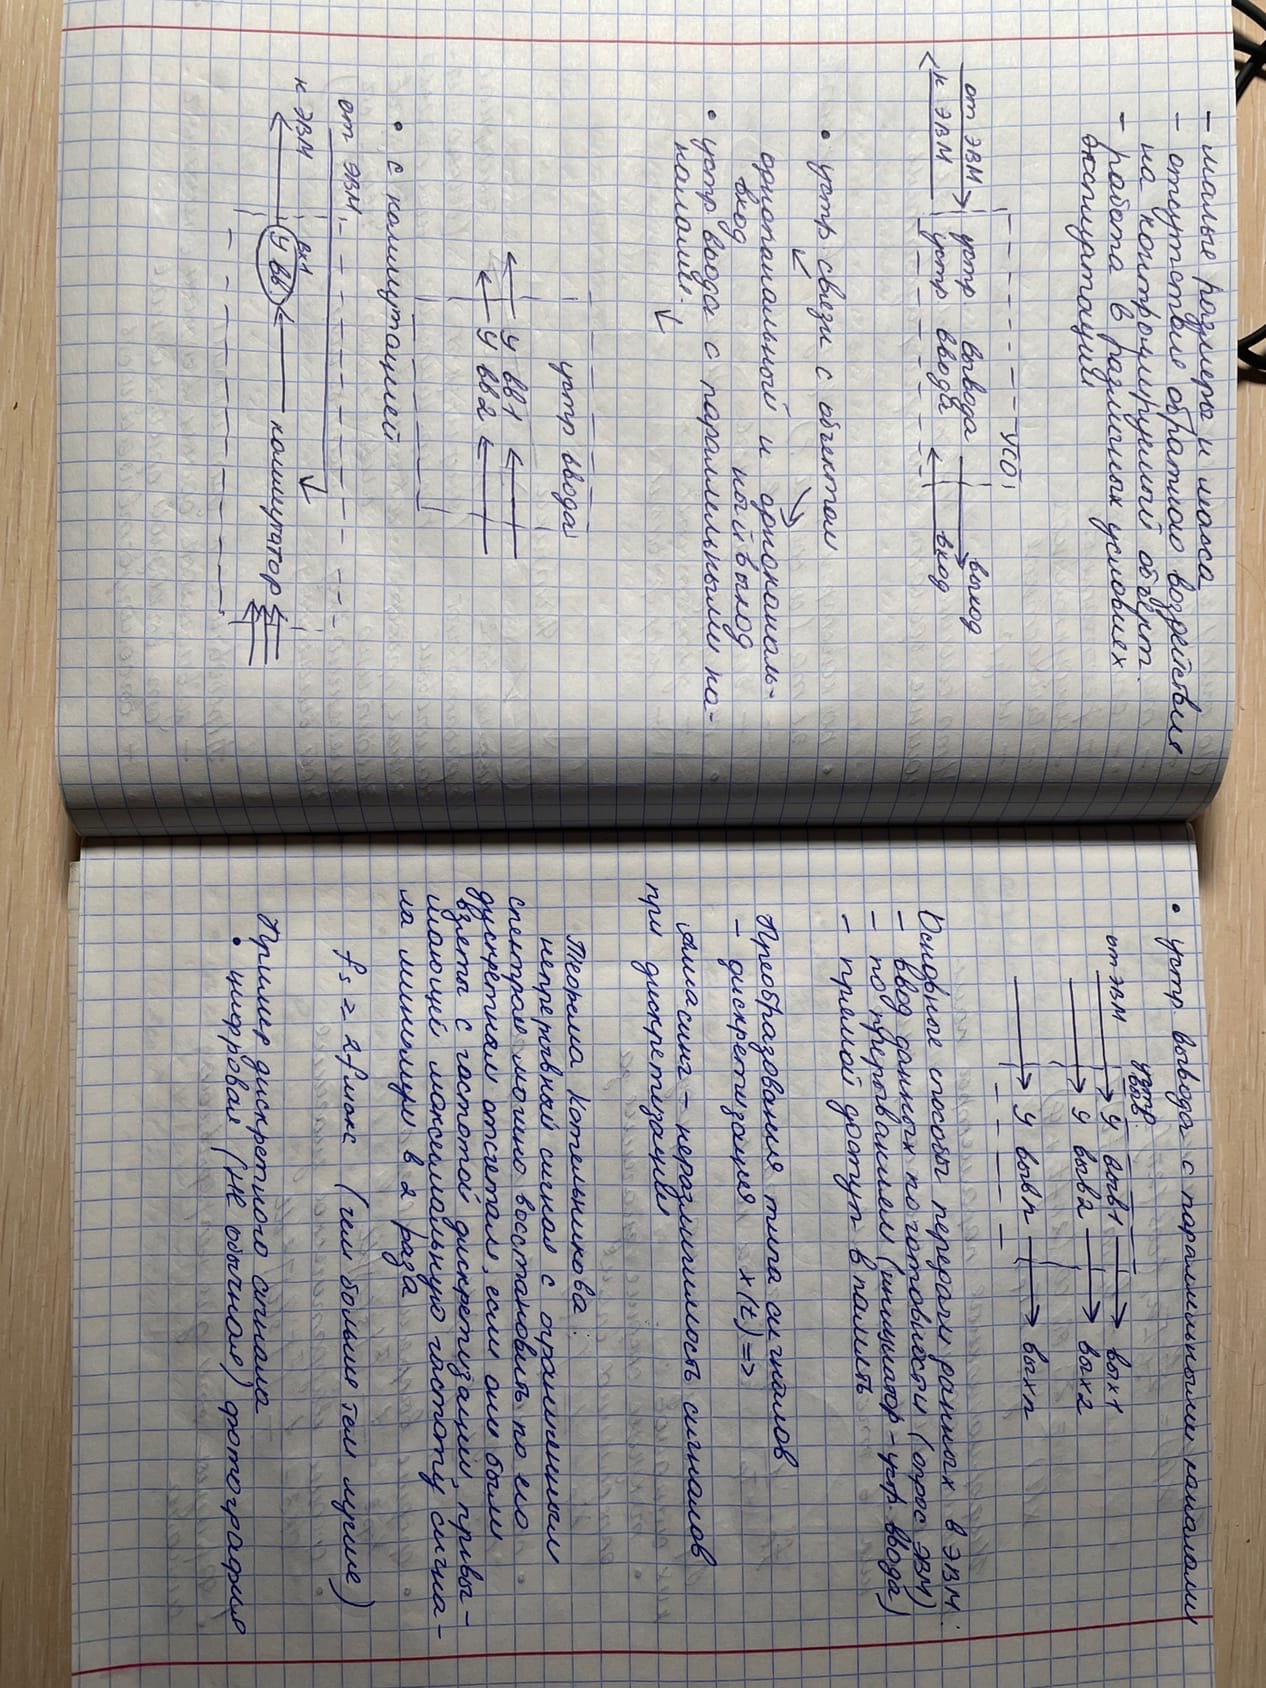 – малые размеры и масса
– отсутствие обратного воздействия
на контроллируемый объект.
– работа в различных условиях
эксплуатации
УСО
от ЭВМ устр вывода выход
к ЭВМ устр ввода вход
• устр связи с объектом
одноканальный и одноканаль-
вход ный выход
• устр ввода с параллельными ка-
налами.
устр ввода
У вв1
У вв2
• с коммутацией
от ЭВМ
к ЭВМ вх1
У вв коммутатор
• устр вывода с параллельными каналами
устр
выв.
от ЭВМ У выв1 вых1
У выв2 вых2
У вывn выхn
Основные способы передачи данных в ЭВМ:
– ввод данных по готовности (опрос ЭВМ)
– по прерываниям (инициатор – устр. ввода)
– прямой доступ в память
Преобразования типа сигналов
– дискретизация x(t) =>
Алиасинг – неразличимость сигналов
при дискретизации
Теорема Котельникова:
непрерывный сигнал с ограниченным
спектром можно восстановить по его
дискретным отсчетам, если они были
взяты с частотой дискретизации, превы-
шающей максимальную частоту сигна-
ла минимум в 2 раза
fs ≥ 2fмакс (чем больше тем лучше)
Пример дискретного сигнала
• цифровая (НЕ обычная) фотография